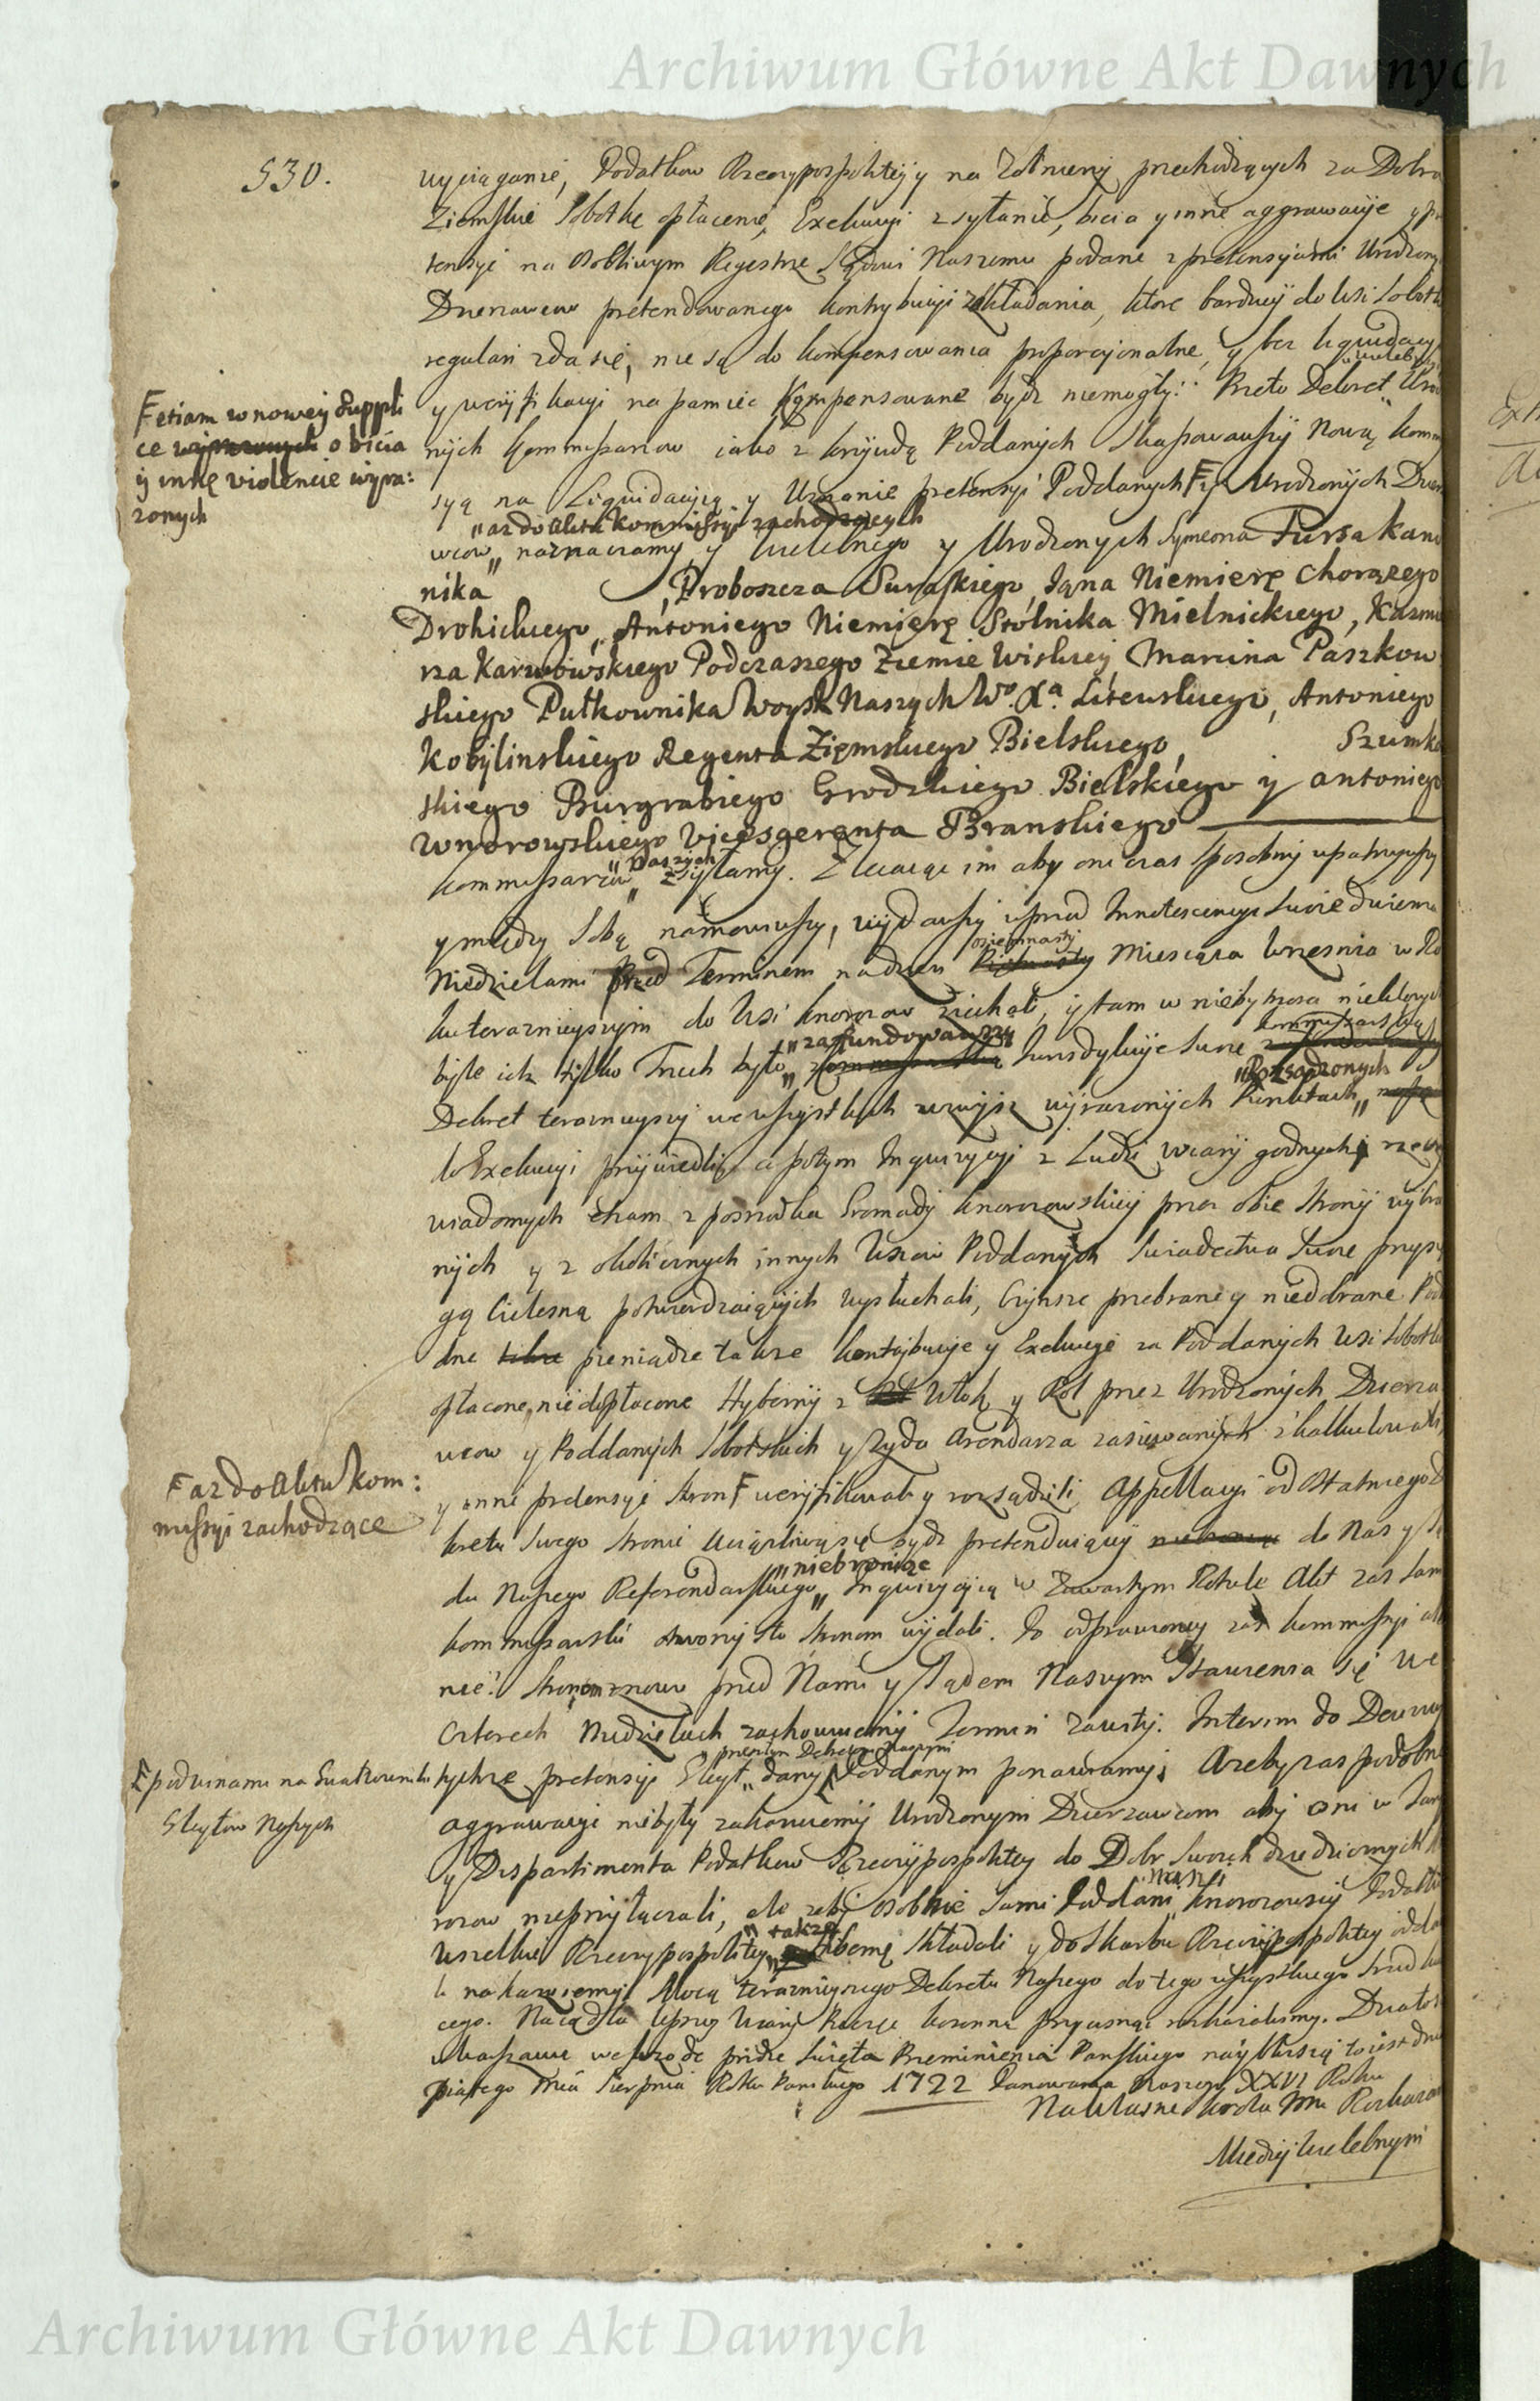 Archiwum Główne Akt Dawnych
530.
wyciąganie, Podatkow Rzeczypospolitey y na Zołnierzy przechodzących za Dobra
Ziemskie Sobotkę opłacenie, Exekucyi zsyłanie, bicia y inne aggrawacyje y pre
tensyje na osobliwym Regestrze Sądowi Naszemu podane z pretensyiami Urodzonych
Dzierzawcow pretendowanego kontrybucyi zakładania, ktore bardziey do Wsi Sobotki
regulari zda się, nie są do kompensowania proporcyonalne, y bez liquidacyi
y weryfikacyi na pamięć kompensowane bydz niemogły: Przeto Dekret Urodzo
nych Kommissarzow iako z krzywdą Poddanych skassowawszy Nową Kommis
syą na Liquidacyią y Uznanie pretensyi Poddanych F y Urodzonych Dzierza
„az do aktu kommissyi zachodzących
wcow„ naznaczamy y Wielebnego y Urodzonych Symeona Fursa kano
nika , Proboszcza Suraskiego, Jana Niemierę Chorązego
Drohickiego, Antoniego Niemierę Stolnika Mielnickiego, Kazmie
rza Karwowskiego Podczaszego Ziemie Wiskiey Marcina Paszkow
skiego Pułkownika Woysk Naszych Wo. Xa. Litewskiego, Antoniego
Kobylinskiego Regenta Ziemskiego Bielskiego, Szumko
skiego Burgrabiego Grodzkiego Bielskiego y Antoniego
Wnorowskiego Vicesgerenta Branskiego
Kommissarzow „Naszych zsyłamy. Zlecaiąc im aby oni czas sposobny upatrzywszy
y między Sobą namowiwszy, wydawszy wprzod Innotescencye Swoie dwiema
Niedzielami przed Terminem na dzien osiemnasty Miesiąca Wrzesnia w Ro
ku teraznieyszym do Wsi Knorozow ziechali, y tam w niebytnosci niektorych
byle ich tylko Trzech było „zafundowawszy Jurysdykcyie Swoie kommissarską
Dekret teraznieyszy we wszystkich wzwyz wyrazonych Punktach „Rozsądzonych
do Exekucyi przywiedli, a potym Inquizycyi z Ludzi wiary godnych, rzeczy
wiadomych etiam z posrzodka Gromady Knorozowskiey przez obie strony wybra
nych y z okolicznych innych Wsiow Poddanych Swiadectwa Swoie przysię
gą Cielesną potwierdzaiących wysłuchali, Czynsze przebrane y niedobrane Pod
dne pieniądze takze kontrybucyie y Exekucyie za Poddanych Wsi Sobotki
opłacone, niedopłacone Hyberny z Włok y Rol przez Urodzonych Dzierza
wcow y Poddanych Sobotskich y Zyda Arendarza zasiewanych zkalkulowali,
y inne pretensyje stron F weryfikowali y rozsądzili, Appellacyi od Ostatniego De
kretu Swego stronie Uciązliwą się bydz pretenduiącey do Nas y Są
du Naszego Referendarskiego „niebroniąc Inquizycyią w Zawartym Rotule Akt zas Sam
kommissarski otworzysto stronom wydali. Po odprawioney zas kommissyi
nie. Stronom znowu przed Nami y Sądem Naszym Stawienia się we
czterech Niedzielach zachowuiemy Termin Zawity. Interim do Decyzyi
tychze pretensyi Gleyt „przeciwnym Dekretem Naszymi dany Poddanym ponawiamy. Azeby zas podobne
aggrawacyie niebyły zakazuiemy Urodzonym Dzierzawcom aby oni w Tary
y Dispartimenta Podatkow Rzeczypospolitey do Dobr Swoich dziedzicznych
rozow nieprzyłączali, ale zeby osobnie sami Poddani Nasi Knorozowscy Podatki
wszelkie Rzeczypospolitey „takze Hibernę składali y do Skarbu Rzeczypospolitey oddawa
li nakazuiemy Mocą teraznieyszego Dekretu Naszego do tego wszystkiego srzodku
cego. Na co dla lepszey Wiary Pieczęc koronna przycisnąc rozkazalismy. Działo się
w Warszawie we Srzodę pridie Swięta Przemienienia Panskiego naybliszą to iest dnia
piątego Mca Sierpnia Roku Panskiego 1722 Panowania Naszego XXVI Roku
Na Własne Krola Jmci Rozkazanie
Miedzy Wielebnym
F etiam w nowey suppli
ce o bicia
y inne violencie wyra:
zonych
F az do aktu kom:
missyi zachodzące
F pod winami na Gwałcownikow
Gleytow Naszych
Archiwum Główne Akt Dawnych